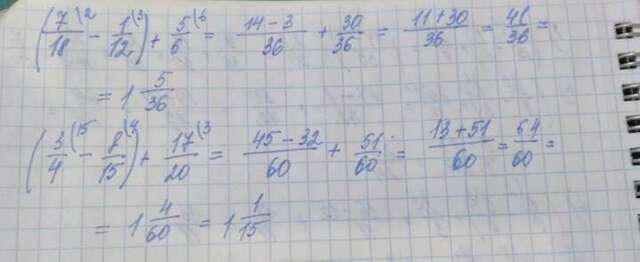 (7/18 \2 - 1/12 \3) + 5/6 \6 = (14-3)/36 + 30/36 = (11+30)/36 = 41/36 =
= 1 5/36
(3/4 \15 - 8/15 \4) + 17/20 \3 = (45-32)/60 + 51/60 = (13+51)/60 = 64/60 =
= 1 4/60 = 1 1/15